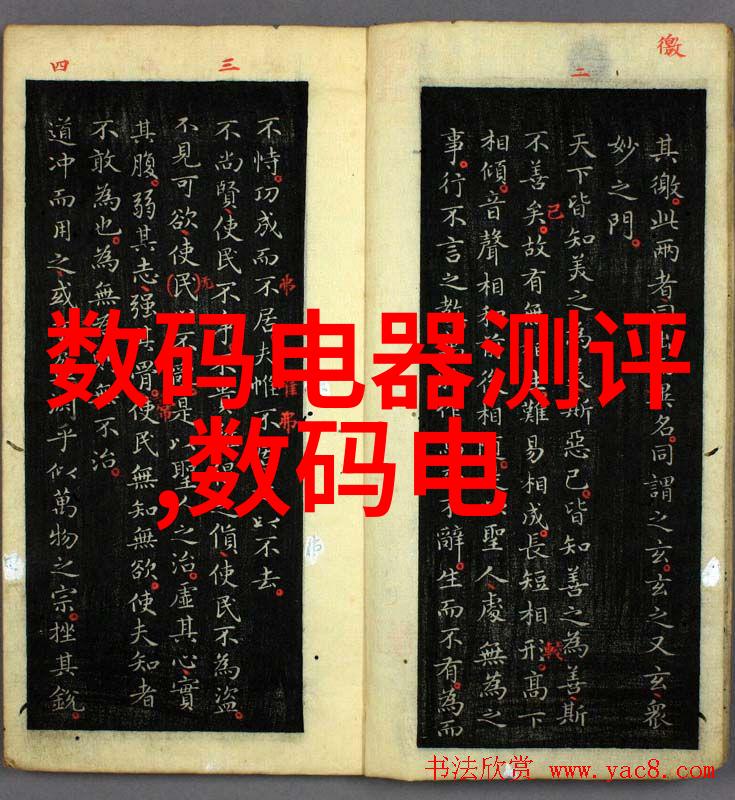 徼
二
其徼此两者同出異名同謂之玄玄之又玄衆
妙之門
天下皆知美之為斯惡已皆知善之為善斯
不善矣故有無相難易相成長短相形髙下
相傾音聲相前後相聖人處無為之
事行不言之教作不辭生而不有為而
三
四
不恃功成而不居夫惟不不去
不尚賢使民不不貴之貨使民不為盜
不見可欲使民不是以聖人之治虛其心實
其腹弱其志强其骨使民無知無欲使夫知者
不敢為也為無無不治
道冲而用之或乎似萬物之宗挫其銳
数码电器测评
,数码电
书法欣赏 www.yac8.com